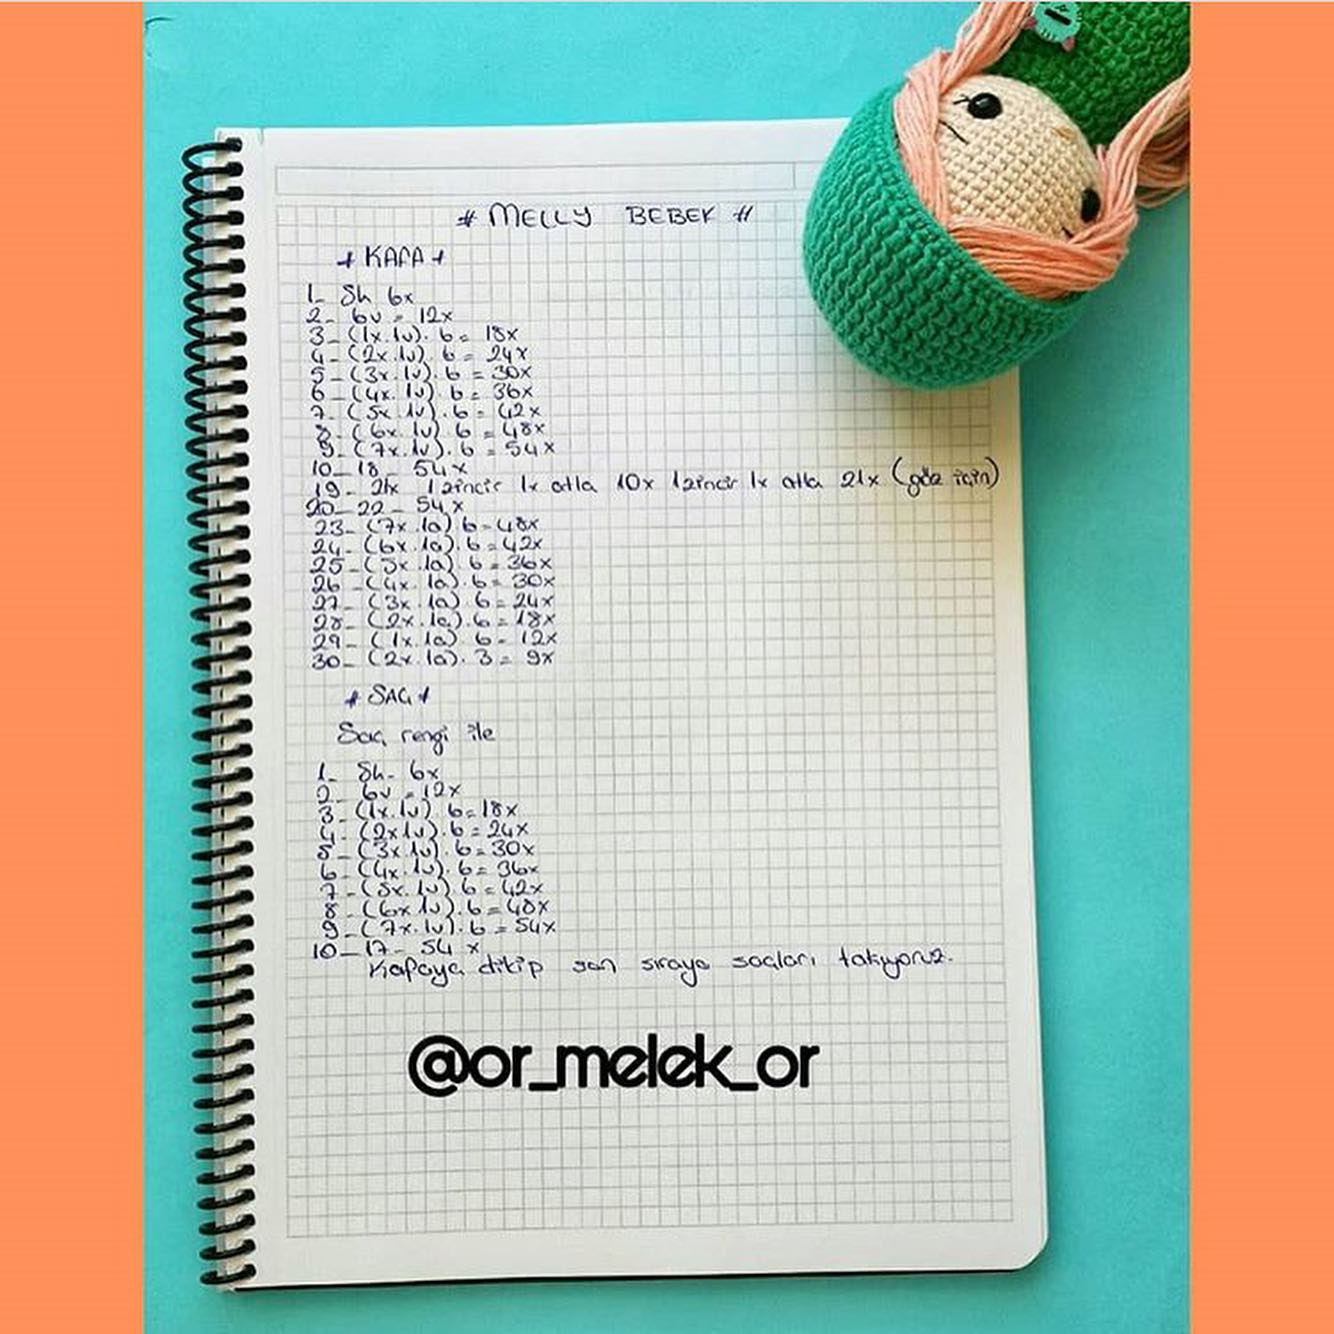 # MELLY BEBEK #
* KAFA *
1- Sh 6x
2- 6v = 12x
3- (1x.1v). 6 = 18x
4- (2x.1v). 6 = 24x
5- (3x.1v). 6 = 30x
6- (4x.1v). 6 = 36x
7- (5x.1v). 6 = 42x
8- (6x.1v). 6 = 48x
9- (7x.1v). 6 = 54x
10-18- 54x
19- 21x 1zincir 1x atla 10x 1zincir 1x atla 21x (göz için)
20-22- 54x
23- (7x.1a) 6 = 48x
24- (6x.1a). 6 = 42x
25- (5x.1a). 6 = 36x
26- (4x.1a). 6 = 30x
27- (3x.1a). 6 = 24x
28- (2x.1a). 6 = 18x
29- (1x.1a). 6 = 12x
30- (2x.1a). 3 = 9x
* SAÇ *
Saç rengi ile
1- Sh- 6x
2- 6v = 12x
3- (1x.1v). 6 = 18x
4- (2x.1v). 6 = 24x
5- (3x.1v). 6 = 30x
6- (4x.1v). 6 = 36x
7- (5x.1v). 6 = 42x
8- (6x.1v). 6 = 48x
9- (7x.1v). 6 = 54x
10-17- 54x
Kafaya dikip son sıraya saçları takıyoruz.
@or_melek_or